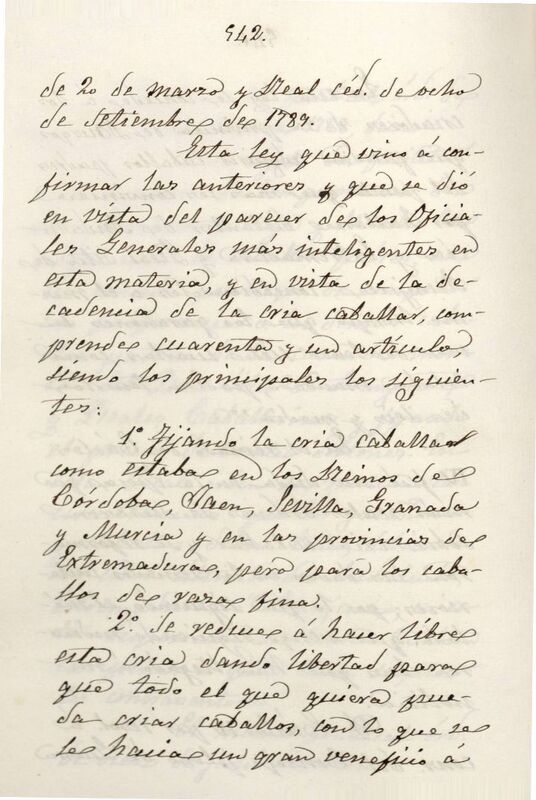 942.
de 20 de marzo y Real céd. de ocho
de setiembre de 1789.
Esta ley que vino á con-
firmar las anteriores y que se dió
en vista del parecer de los Oficia-
les Generales más inteligentes en
esta materia, y en vista de la de-
cadencia de la cria caballar, com-
prende cuarenta y un artículo,
siendo los principales los siguien-
tes:
1.º Fijando la cria caballar
como estaba en los Reinos de
Córdoba, Jaen, Sevilla, Granada
y Murcia y en las provincias de
Extremadura, pero para los caba-
llos de raza fina.
2.º de reduce á hacer libre
esta cria dando libertad para
que todo el que quiera pue-
da criar caballos, con lo que se
le hacia un gran veneficio á